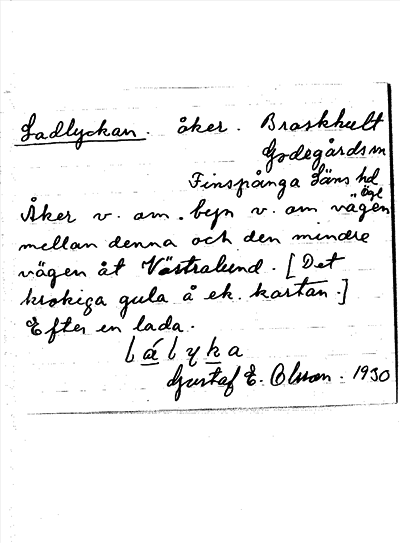 Ladlyckan. åker. Braskhult
Godegårds sn
Finspånga läns hd
Ögl
Åker v. om byn v. om vägen
mellan denna och den mindre
vägen åt Västralund. [Det
krokiga gula å ek. kartan.]
Efter en lada.
Gustaf E. Olsson. 1930